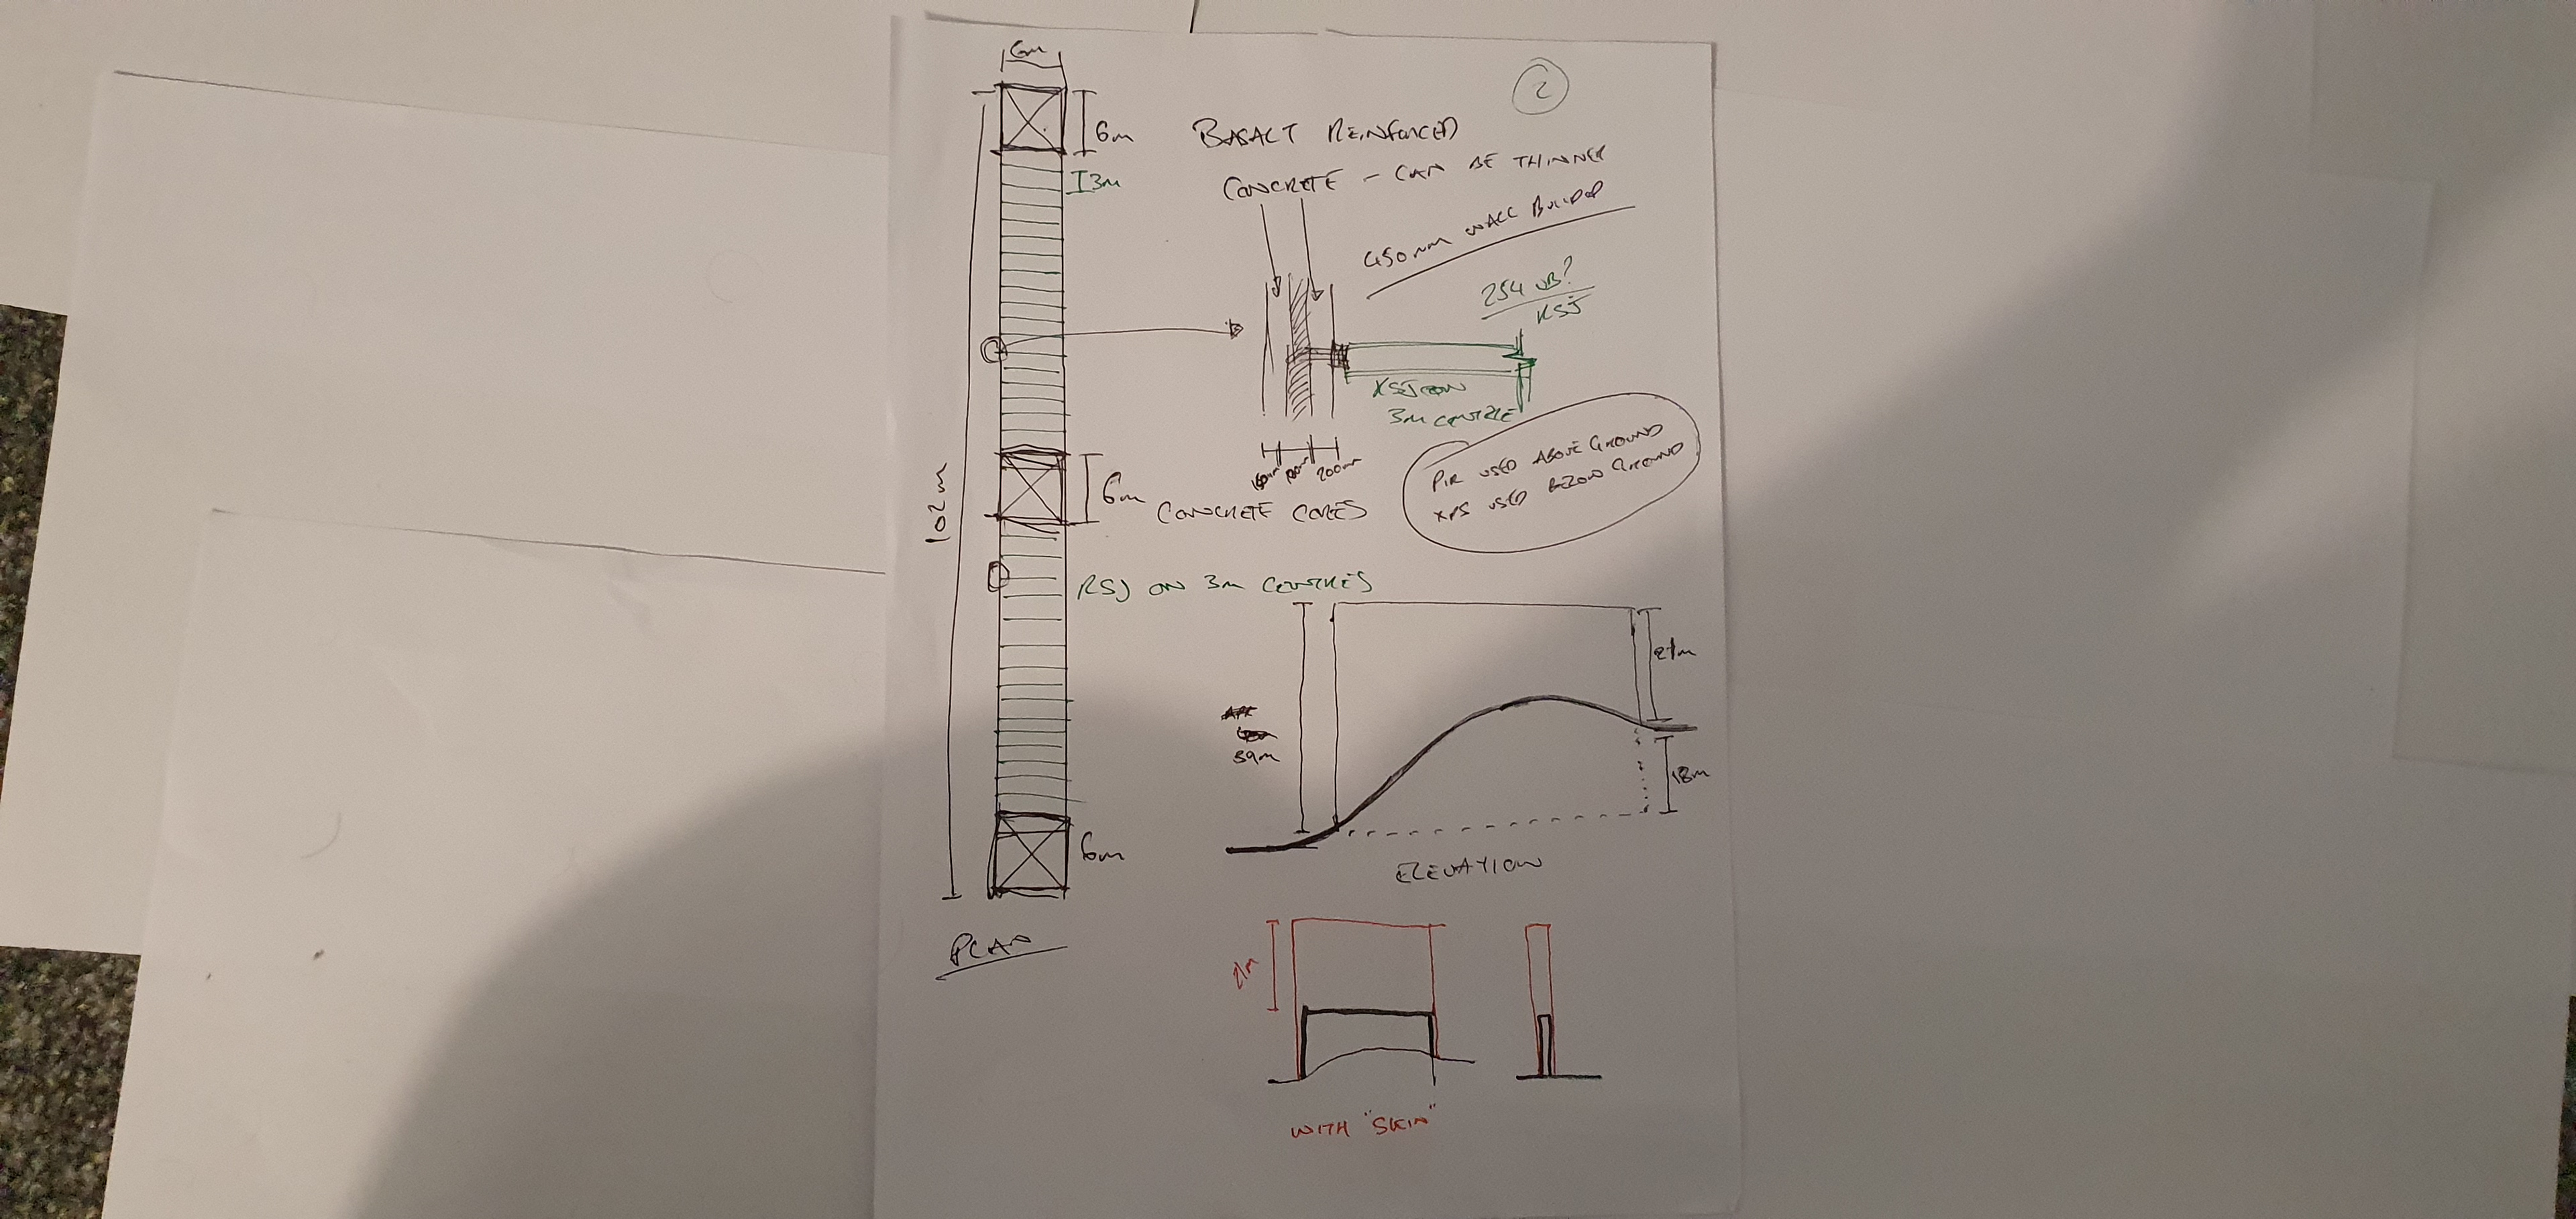 6m
2
6m
BASALT REINFORCED
CONCRETE - CAN BE THINNER
3m
450mm WALL BUILDUP
254 UB?
RSJ
RSJ ON
3m CENTRE
PIR USED ABOVE GROUND
XPS USED BELOW GROUND
150mm 100mm 200mm
102m
6m
CONCRETE CORES
RSJ ON 3m CENTRES
21m
39m
18m
6m
ELEVATION
PLAN
21m
WITH "SKIN"